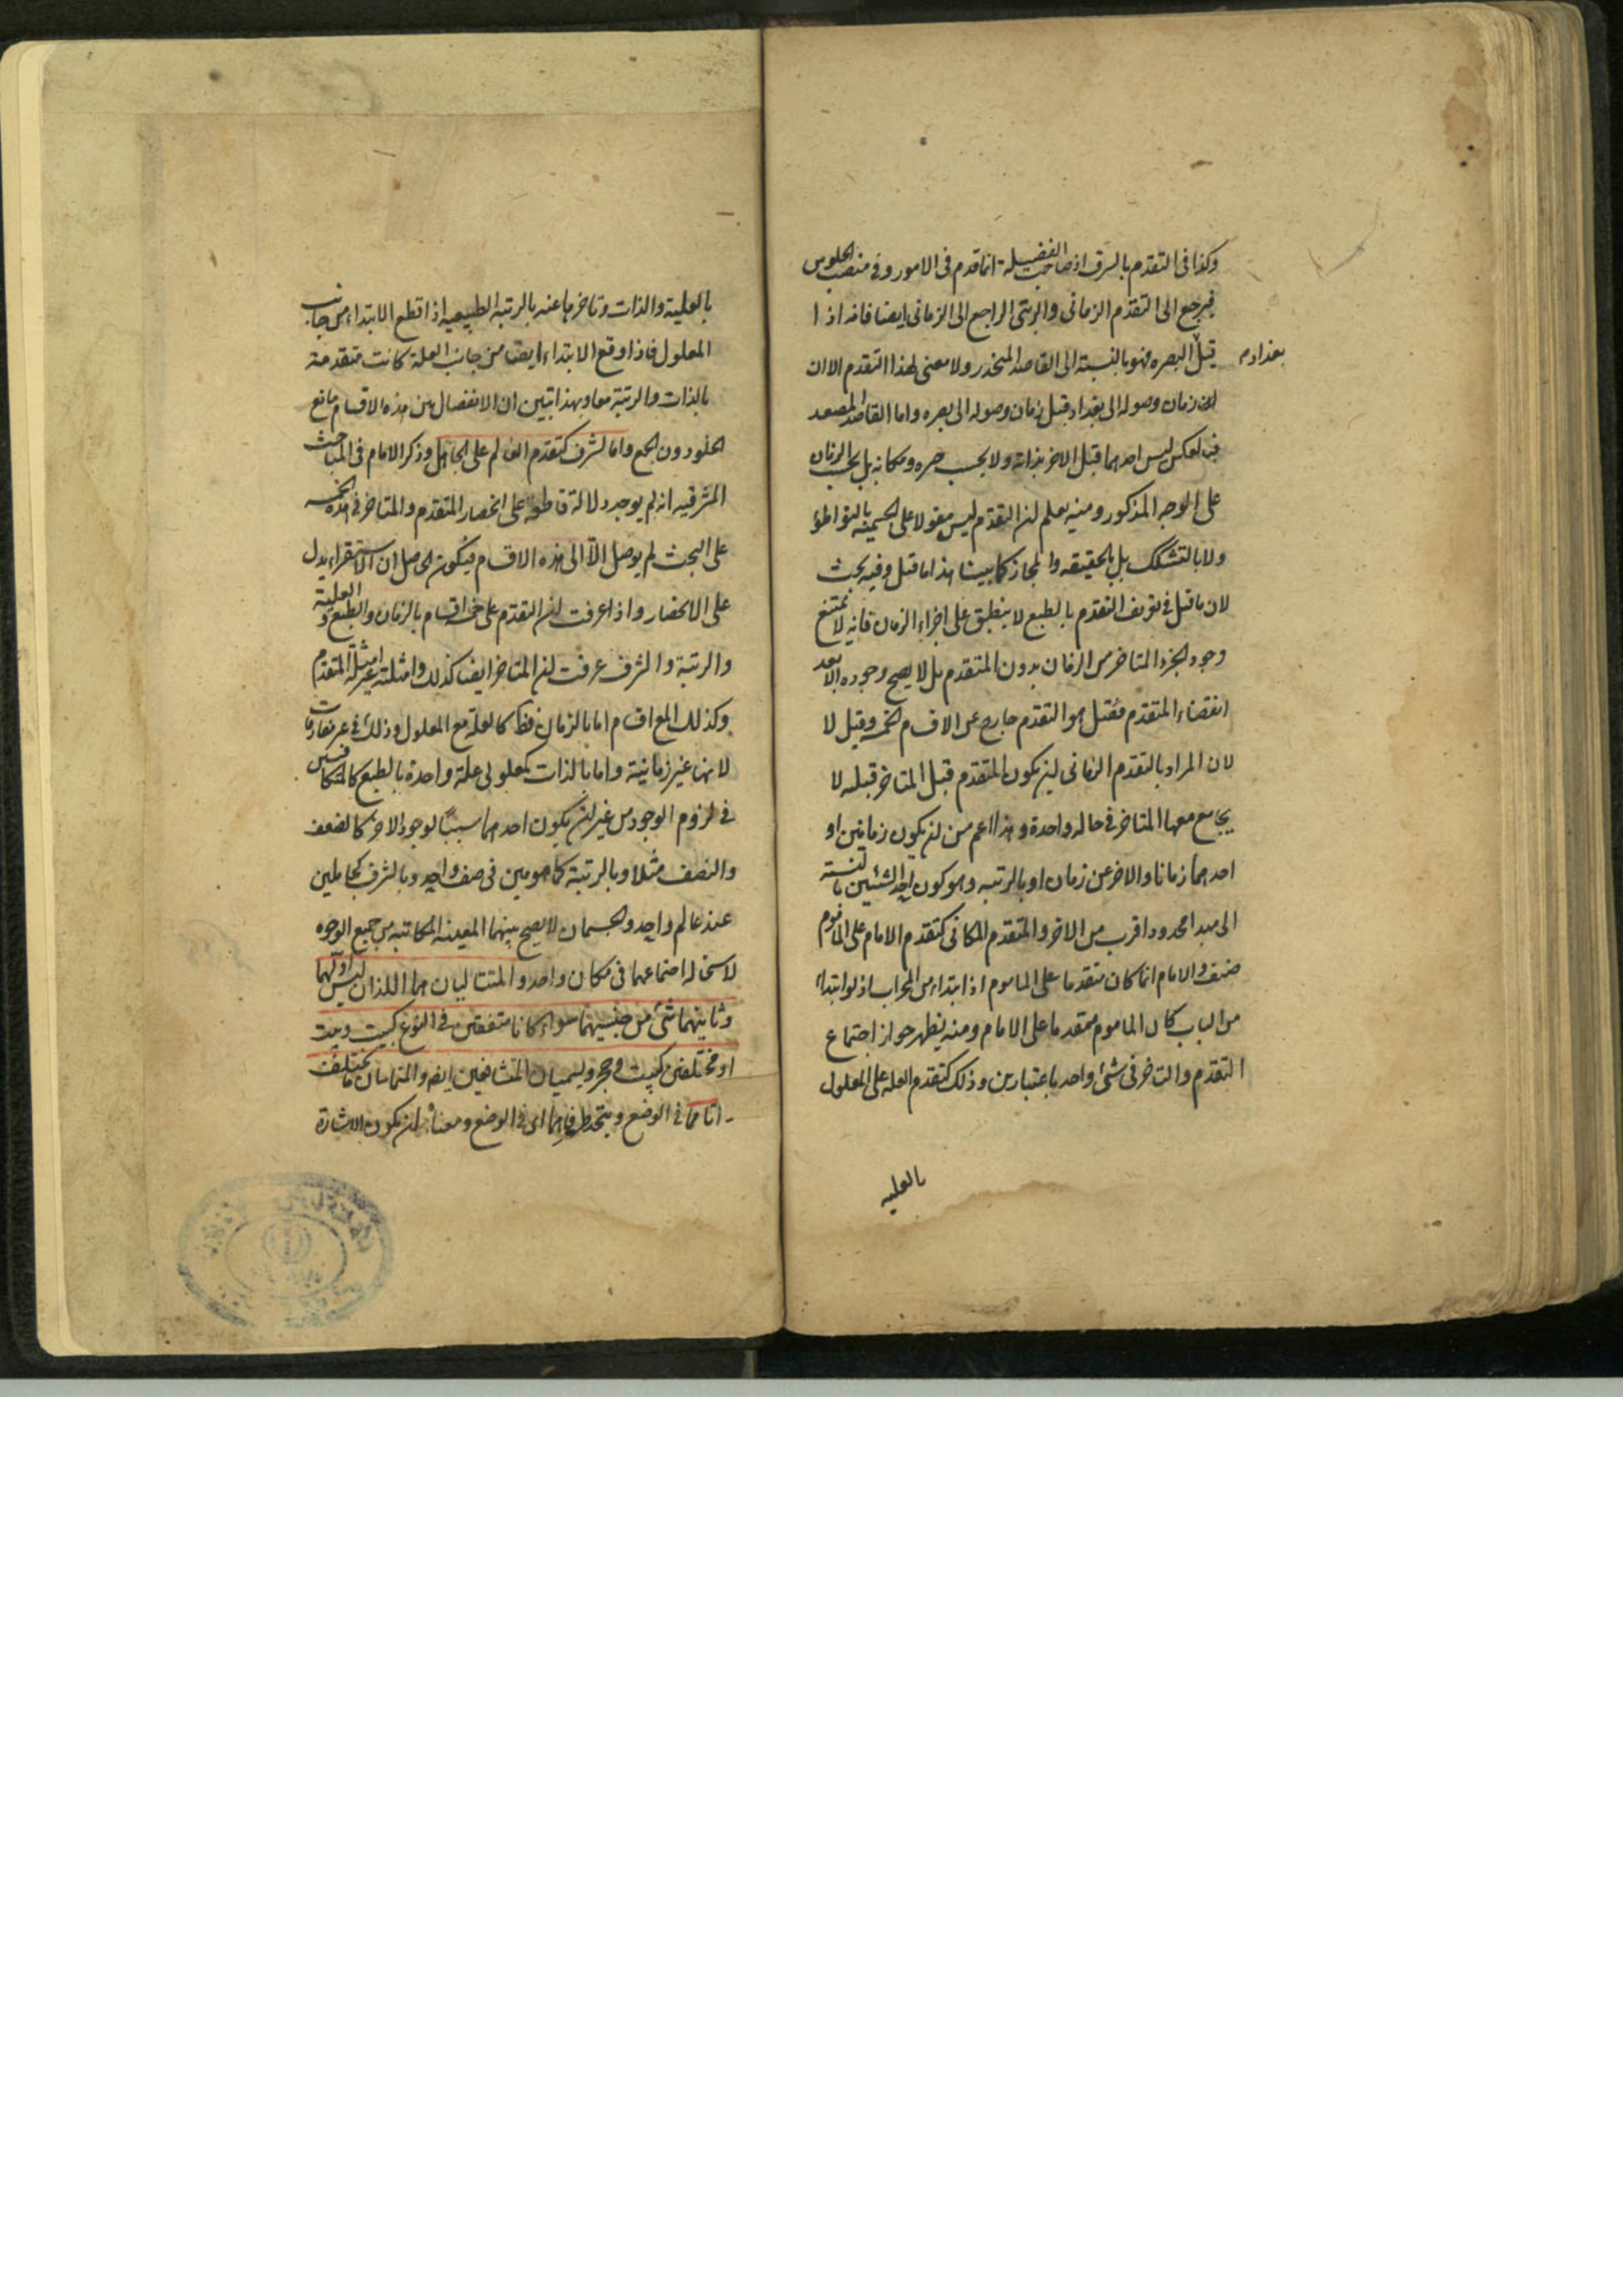 وكذا فى التقدم بالشرف اذ صاحب الفضيلة انما قدم فى الامور وفى منصب الجلوس
فيرجع الى التقدم الزمانى والرتبى الراجع الى الزمانى ايضا فانه اذا
بغداد م
قيل البصره فهو بالنسبة الى القاصد المنحدر ولا معنى لهذا التقدم الا ان
زمان وصوله الى بغداد قبل زمان وصوله الى بصره واما القاصد المصعد
فبالعكس ليس احدهما قبل الاخر بذاته ولا بحسب حيزه ومكانه بل بحسب الزمان
على الوجه المذكور ومنه يعلم ان التقدم ليس مقولا على الخمسة بالتواطؤ
ولا بالتشكك بل بالحقيقه والمجاز كما بينا هذا ما قيل وفيه بحث
لان ما قيل فى تعريف التقدم بالطبع لا ينطبق على اجزاء الزمان فانه لا يمتنع
وجود الجزء المتاخر من الزمان بدون المتقدم بل لا يصح وجوده الا بعد
انقضاء المتقدم فقيل هو التقدم خارج عن الاقسام الخمسة وقيل لا
لان المراد بالتقدم الزمانى ان يكون المتقدم قبل المتاخر قبليه لا
يجامع معها المتاخر فى حاله واحدة وهذا اعم من ان يكون زمانين او
احدهما زمانا والاخر عن زمان او بالرتبه وهو كون احد الشيئين بالنسبة
الى مبدا محدود اقرب من الاخر والمتقدم المكانى كتقدم الامام على الماموم
والامام انما كان متقدما على الماموم اذا ابتداء من المحراب اذ لو ابتداء
من الباب كان الماموم متقدما على الامام ومنه يظهر جواز اجتماع
التقدم والتاخر فى شئ واحد باعتبارين وذلك كتقدم العله على المعلول
بالعليه
بالعلية والذات وتاخرها عنه بالرتبة الطبيعيه اذا قطع الابتداء من جانب
المعلول فاذا وقع الابتداء ايضا من جانب العلة كانت متقدمة
بالذات والرتبة معا وبهذا تبين ان الانفصال بين هذه الاقسام مانع
الخلو دون الجمع واما بالشرف كتقدم العالم على الجاهل وذكر الامام فى المباحث
المشرقيه انه لم يوجد دلالة قاطعة على انحصار المتقدم والمتاخر فى هذه الخمسه
على البحث لم يوصل الا الى هذه الاقسام فيكون الحاصل ان الاستقراء يدل
على الانحصار واذا عرفت ان التقدم على خمسة اقسام بالزمان والطبع والعلية
والرتبة والشرف عرفت ان المتاخر ايضا كذلك وامثلته امثلة المتقدم
وكذلك المع اقسام اما بالزمان فقط كالعلة مع المعلول وذلك فى غير مفارقات
لانها غير زمانية واما بالذات كمعلولى علة واحدة بالطبع كالمتكافئين
فى لزوم الوجود من غير ان يكون احدهما سببا لوجود الاخر كالضعف
والنصف مثلا وبالرتبة كمامومين فى صف واحد وبالشرف كجاهلين
عند عالم واحد والجسمان لا يصح بينهما المعية المكانية من جميع الوجوه
لاستحالة اجتماعهما فى مكان واحد والمتتاليان هما اللذان ليس اولهما
وثانيهما شئ من جنسهما سواء كانا متفقين فى النوع كبيت وبيت
او مختلفين كبيت وحجر ويسميان المتشافعين ايضا والمتماسان
فى الوضع اى فى الوضع ومعناه ان يكون الاشارة